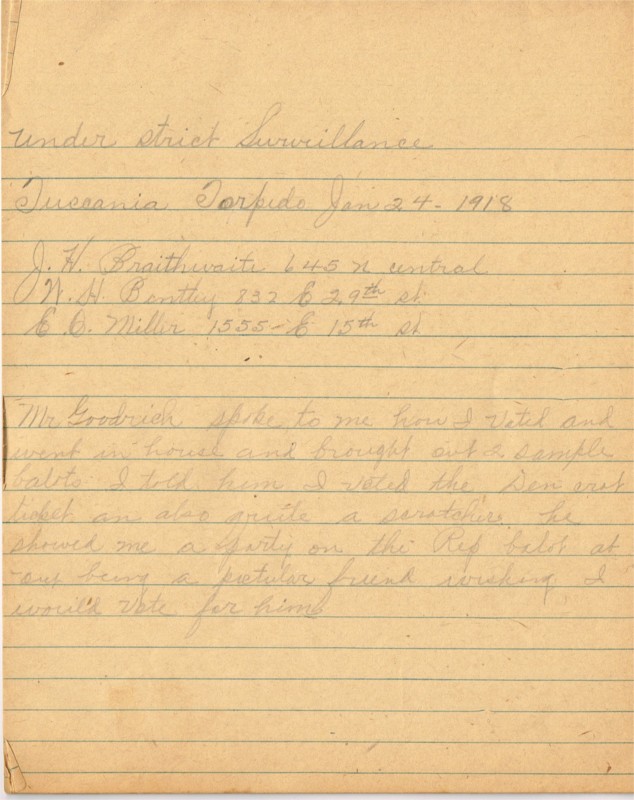 under strict Surveillance
Tuscania Torpedo Jan 24 - 1918
J. H. Braithwaite 645 N central
W. H. Bentley 832 E 29th st.
E. O. Miller 1555 - E 15th st
Mr Goodrich spoke to me how I voted and
went in house and brought out 2 sample
balots I told him I voted the Dem crat
ticket an also quite a scratcher. he
showed me a party on the Rep balot at
being a friend wishing I
would vote for him